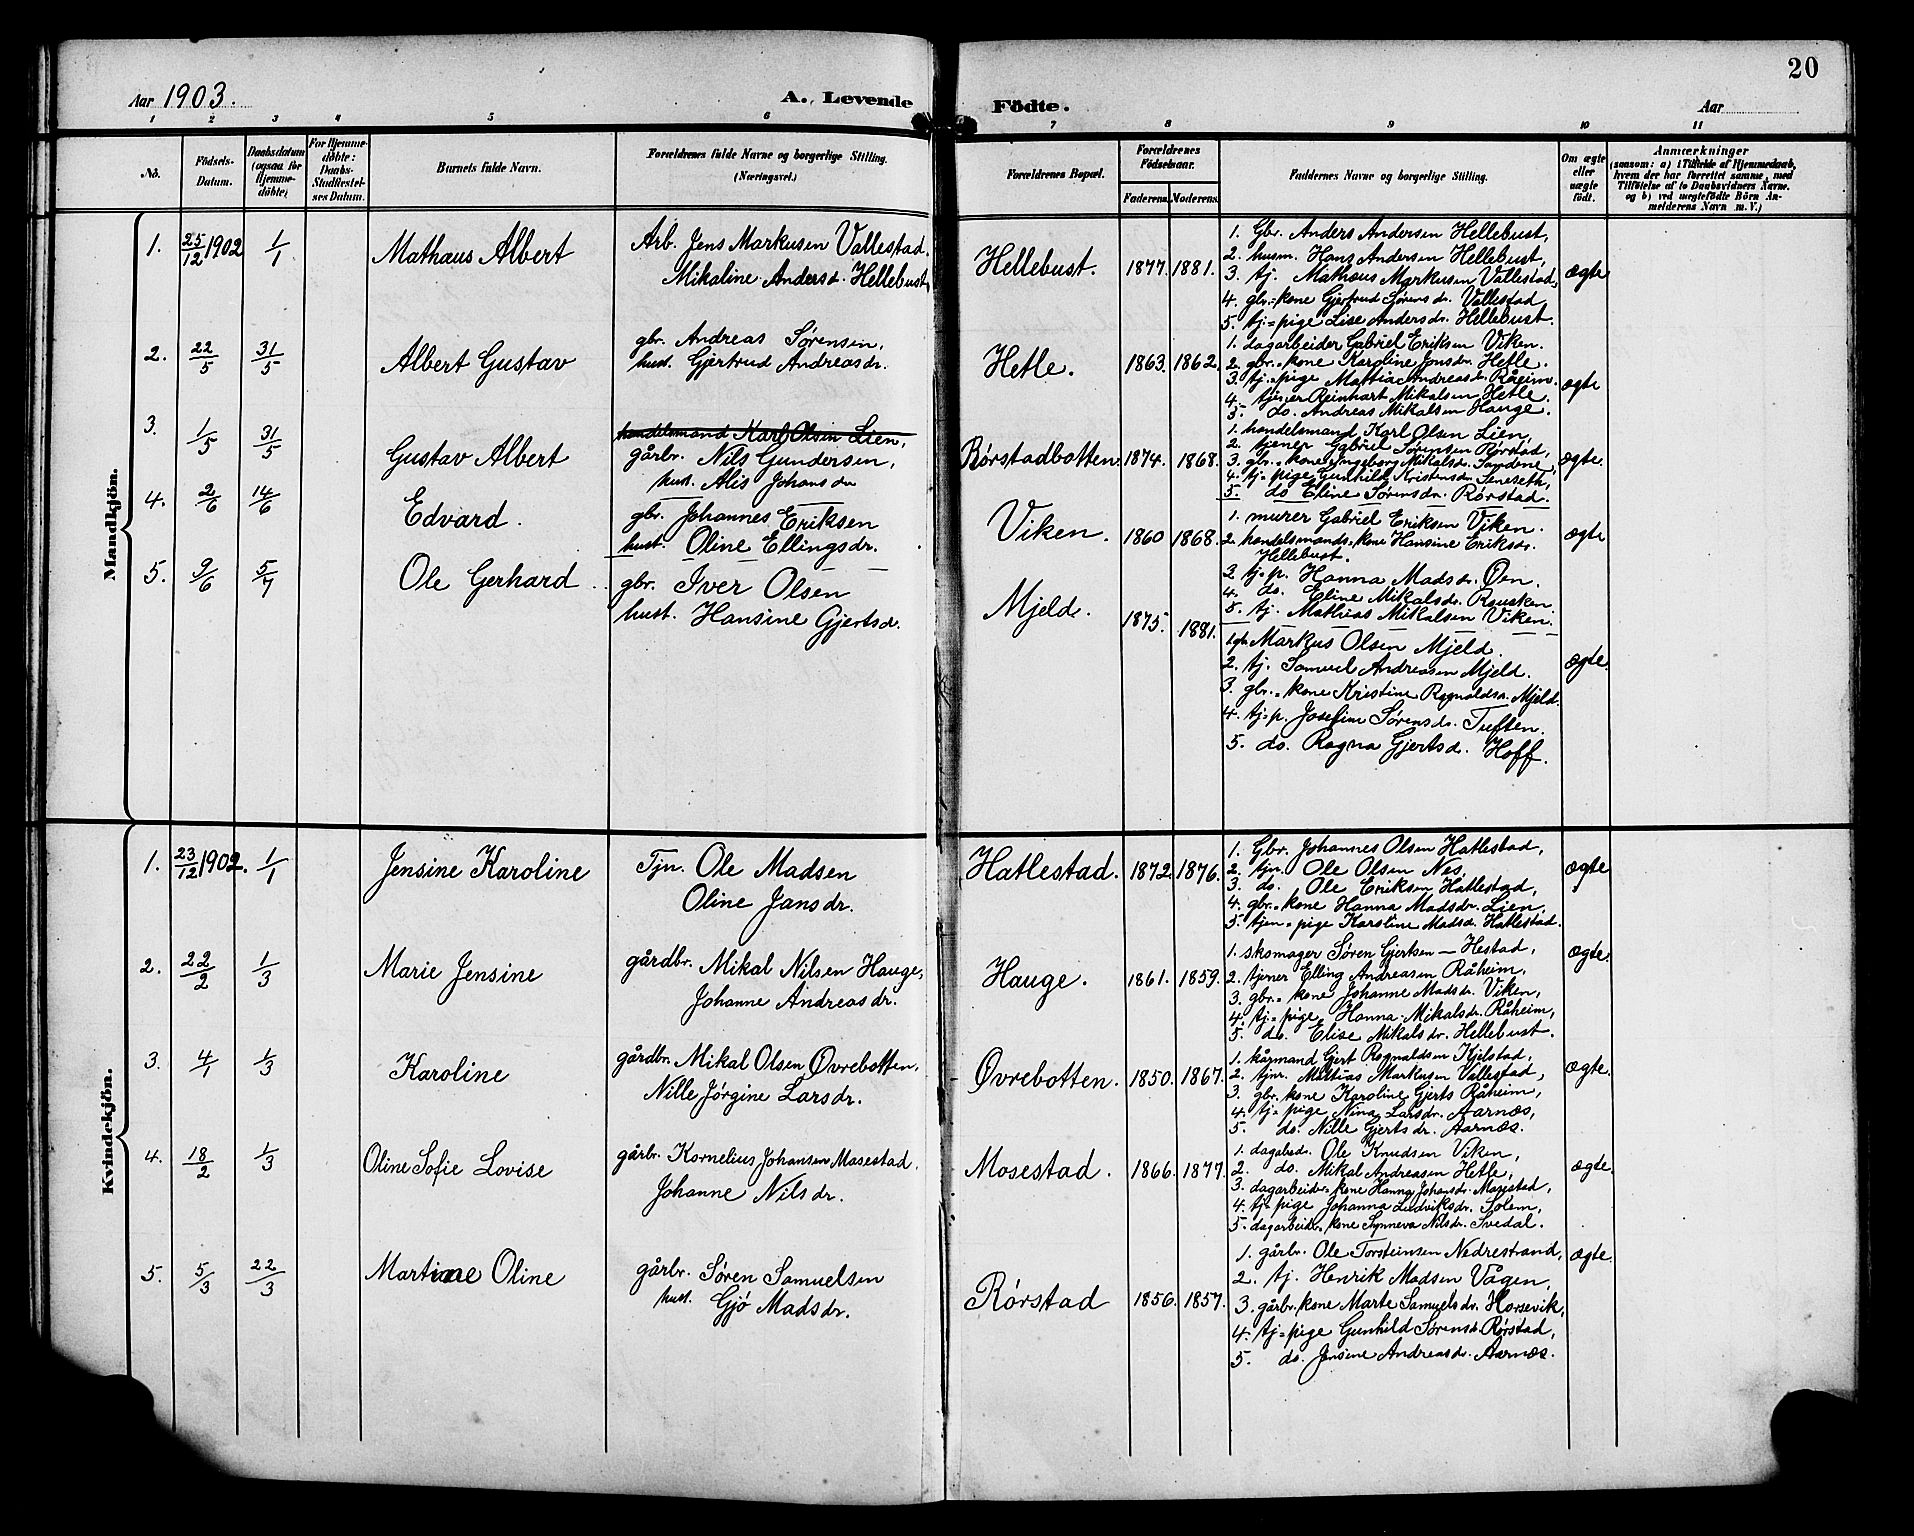 20
Aar 1903.
A. Levende Födte.
Aar
1 2 3 4 5 6 7 8 9 10 11
No.
Födsels-Datum.
Daabsdatum (ogsaa for Hjemme-döbte)
For Hjemme-döbte: Daabs-Stadfæstel-ses Datum.
Barnets fulde Navn.
Forældrenes fulde Navne og borgerlige Stilling. (Næringsvei.)
Forældrenes Bopæl.
Forældrenes Födselsaar.
Faderens. Moderens.
Faddernes Navne og borgerlige Stilling.
Om ægte eller uægte födt.
Anmærkninger
(saasom: a) i Tilfælde af Hjemmedaab, hvem der har forrettet samme, med Tilföielse af to Daabsvidners Navne. og b) ved uægtefödte Börn An-melderens Navn m. V.)
Mandkjön.
1. 25/12 1902 1/1 Mathæus Albert
Arb. Jens Markusen Vallestad.
Mikaline Andersd. Hellebust.
Hellebust. 1877. 1881.
1. Gbr. Anders Andersen Hellebust,
2. husm. Hans Andersen Hellebust,
3. tj. Mathæus Markusen Vallestad,
4. gbr.=kone Gjertrud Sørensdr. Vallestad,
5. tj=pige Lise Andersdr. Hellebust.
ægte
2. 22/5 31/5 Albert Gustav
gbr. Andreas Sørensen,
hust. Gjertrud Andreasdr.
Hetle. 1863. 1862.
1. dagarbeider Gabriel Eriksen Viken.
2. gbr.=kone Karoline Jonsdr. Hetle.
3. tj=pige Mattia Andreasd. Råheim.
4. tjener Reinhart Mikalsen Hetle.
5. do. Andreas Mikalsen Hauge.
ægte
3. 1/5 31/5 Gustav Albert
handelsmand Karl Olsen Lien,
gårbr. Nils Gundersen,
hust. Alis Johansdr
Rørstadbotten. 1874. 1868.
1. handelsmand Karl Olsen Lien,
2. tjener Gabriel Sørensen Rørstad,
3. gbr.=kone Ingeborg Mikalsd. Sandene,
4. tj=pige Gunhild Kristensdr. Seneseth,
5. do Eline Sørensdr. Rørstad.
ægte.
4. 2/6 14/6 Edvard.
gbr. Johannes Eriksen
hust. Oline Ellingsdr.
Viken. 1860 1868.
1. murer Gabriel Eriksen Viken.
2. handelsmands=kone Hansine Eriksdr.
Hellebust.
3. tj=p. Hanna Madsdr. Øen.
4. do. Eline Mikalsdr.
5. tj. Mathias Mikalsen Viken.
ægte
5. 9/6 5/7 Ole Gerhard
gbr. Iver Olsen
hust. Hansine Gjertsd.
Mjeld. 1875. 1881.
1 gb Markus Olsen Mjeld.
2. tj. Samuel Andreasen Mjeld.
3. gbr.=kone Kristine Ragnaldsdr. Mjeld.
4. tj=p. Josefine Sørensdr. Tuften.
5. do. Ragna Gjertsd. Hoff.
ægte.
Kvindekjön.
1. 23/12 1902. 1/1 Jensine Karoline
Tjn. Ole Madsen
Oline Jansdr.
Hatlestad. 1872. 1876.
1. Gbr. Johannes Olsen Hatlestad,
2. tjn. Ole Olsen Nes,
3. do. Ole Eriksen Hatlestad,
4. gbr=kone Hanna Madsdr. Lien,
5. tjen=pige Karoline Madsdr. Hatlestad.
ægte
2. 22/2 1/3 Marie Jensine
gårdbr. Mikal Nilsen Hauge,
Johanne Andreasdr.
Hauge. 1861. 1859.
1. skomager Søren Gjertsen – Hestad,
2. tjener Elling Andreasen Råheim,
3. gbr.=kone Johanne Madsdr. Viken,
4. tj=pige Hanna Mikalsdr. Råheim,
5. do. Elise Mikalsdr. Hellebust.
ægte.
3. 4/1 1/3 Karoline
gårdbr. Mikal Olsen Øvrebotten,
Nille Jørgine Larsdr.
Øvrebotten. 1850. 1867.
1. kårmand Gjert Ragnaldsen Kjelstad,
2. tjnr. Mattias Markusen Vallestad,
3. gbr. kone Karoline Gjerts Råheim,
4. tj=pige Nina Larsdr. Aarnæs,
5. do. Nille Gjertsdr. Aarnæs.
ægte.
4. 18/2 1/3 Oline Sofie Lovise
gårbr. Kornelius Johansen Masestad.
Johanne Nilsdr.
Mosestad. 1866. 1877.
1. dagabed. Ole Knudsen Viken,
2. do. Mikal Andreasen Hetle,
3. dagarbeider=kone Hanna Johansdr. Masestad,
4. tj=pige Johanna Ludviksdr. Solem,
5. dagarbeidr. kone Synneva Nilsdr. Svedal.
ægte.
5. 5/3 22/3 Martine Oline
gårbr. Søren Samuelsen
hust. Gjø Madsdr.
Rørstad 1856. 1857.
1. gårbr. Ole Torsteinsen Nedrestrand,
2. tj. Henrik Madsen Vågen,
3. gårbr. kone Marte Samuelsdr. Horsevik,
4. tj=pige Gunhild Sørensd. Rørstad,
5. do. Jensine Andreasdr. Aarnæs.
ægte.